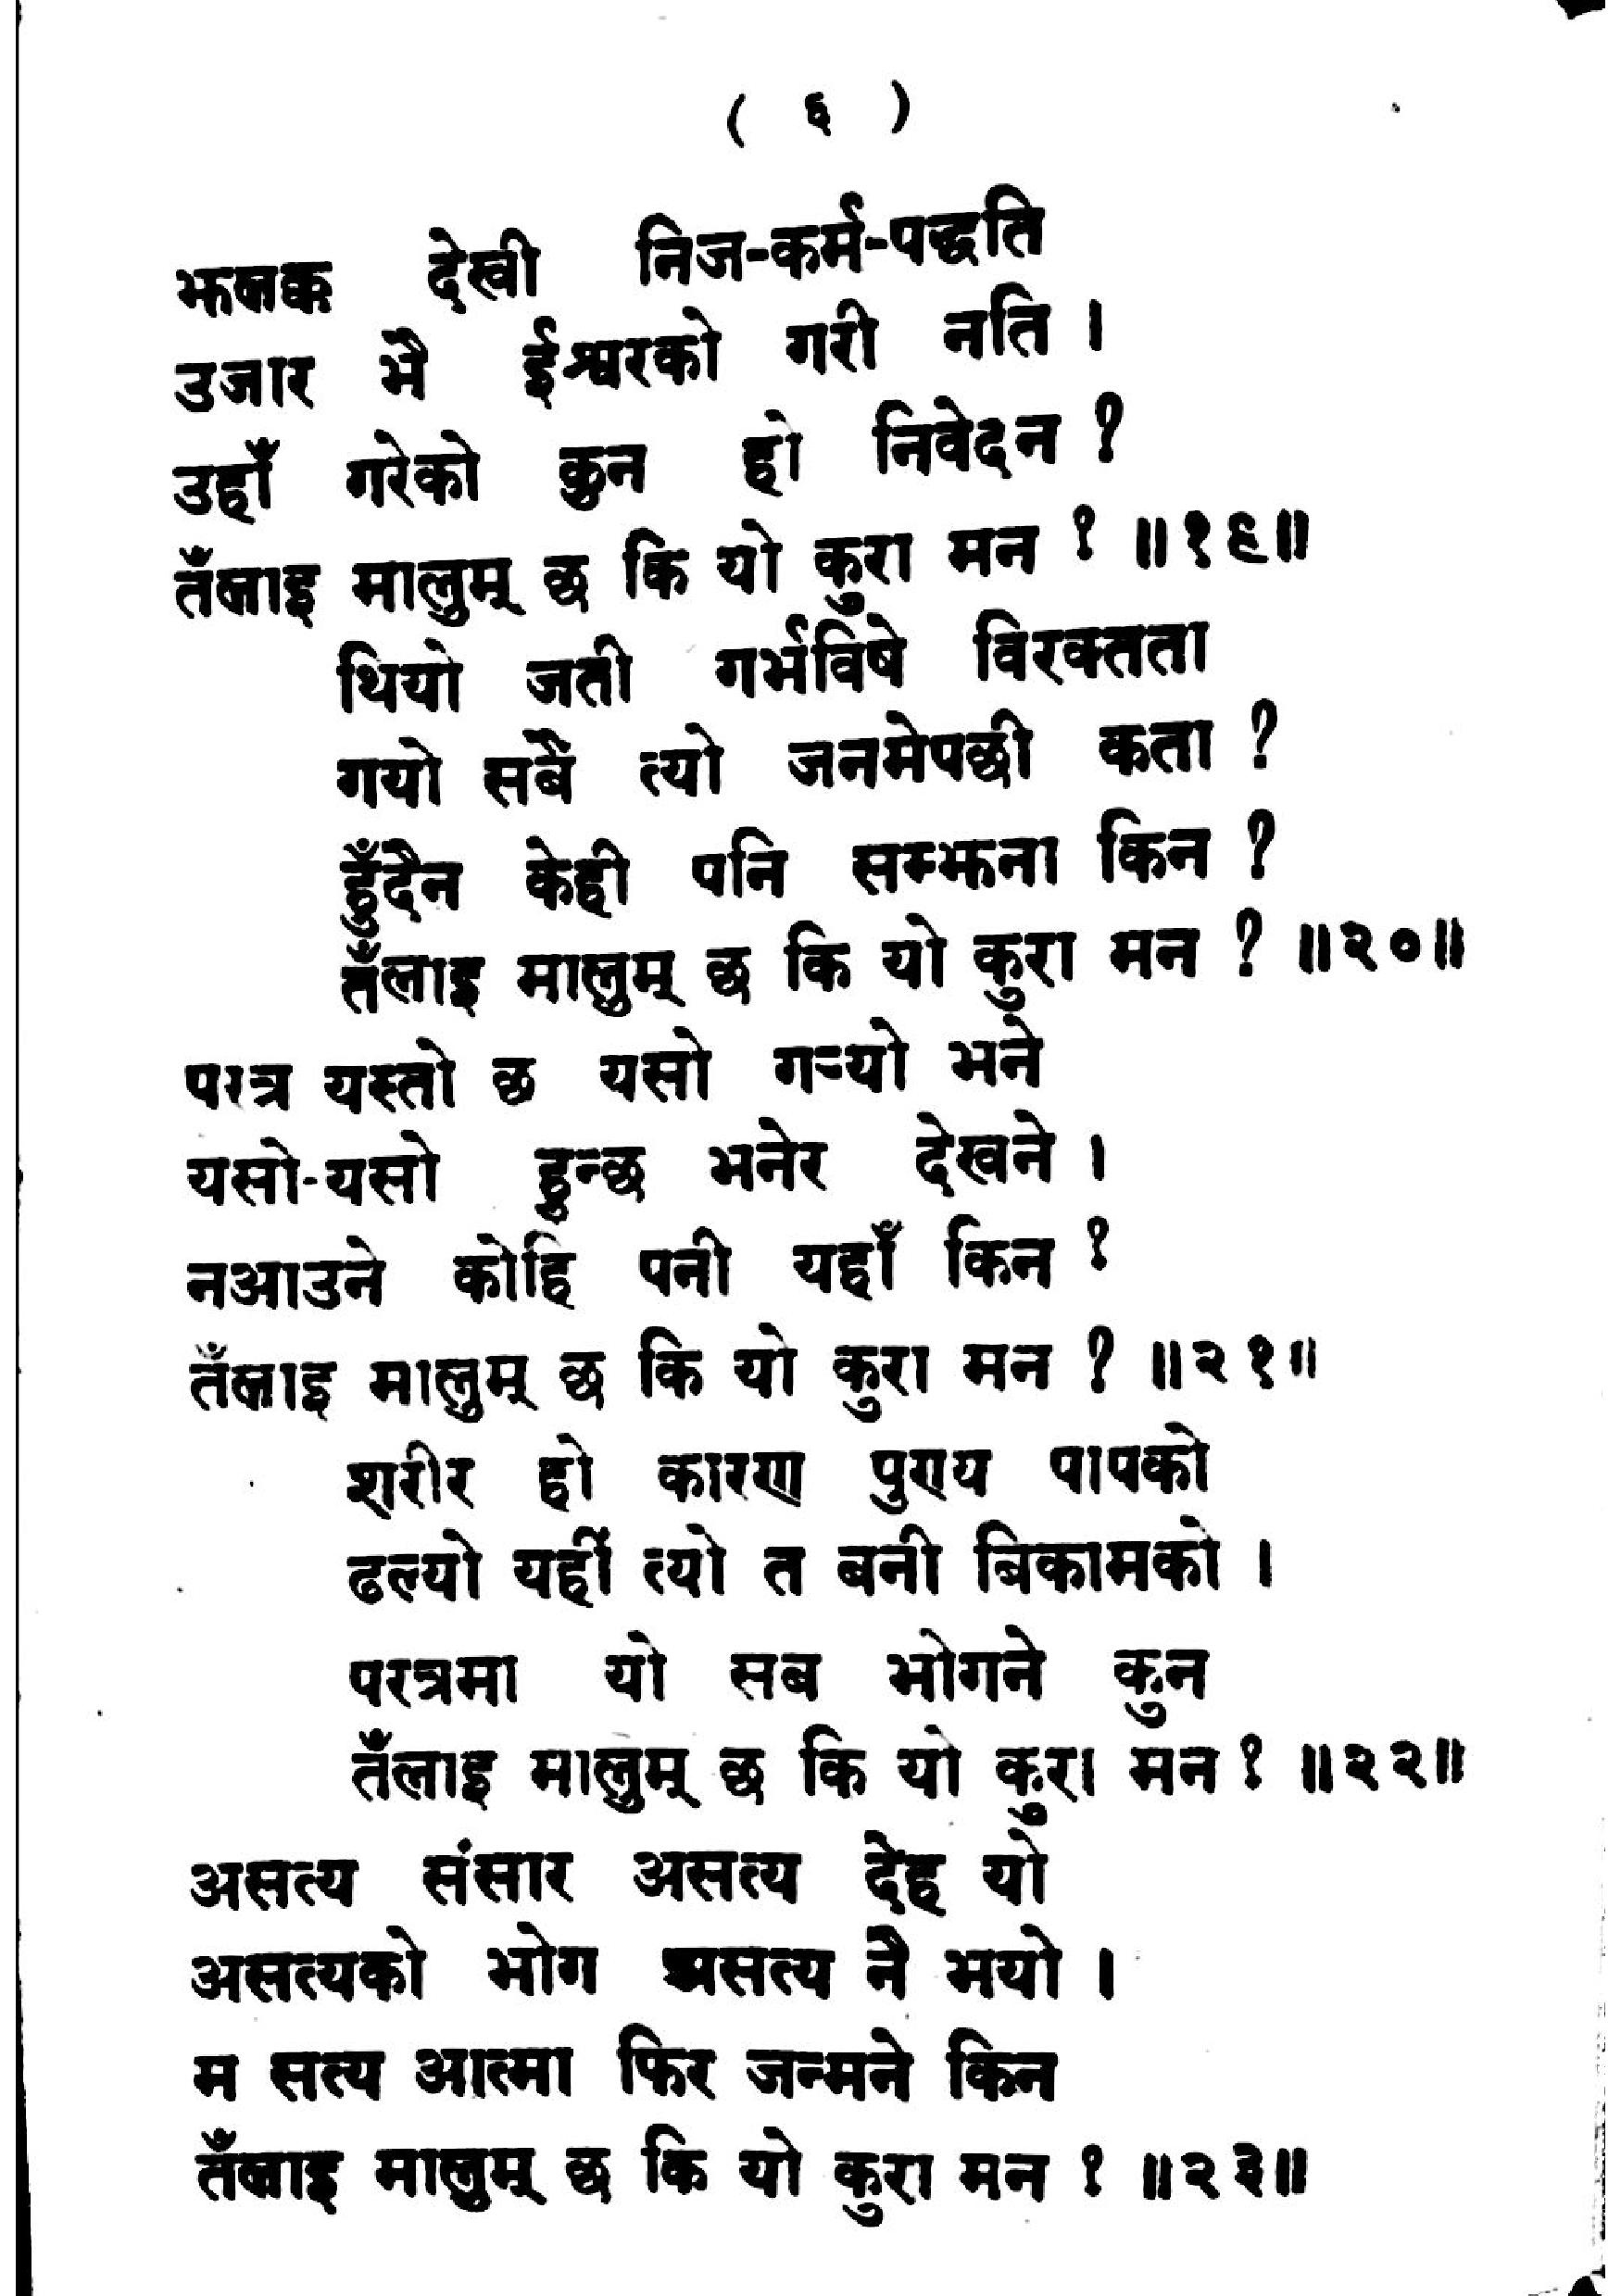 ( ६ )
झलक्क देखी निज-कर्म-पद्धति
उजार भै ईश्वरको गरी नति ।
उहाँ गरेको कुन हो निवेदन ?
तँलाइ मालुम् छ कि यो कुरा मन ? ॥१९॥
थियो जती गर्भविषे विरक्तता
गयो सबै त्यो जनमेपछी कता ?
हुँदैन केही पनि सम्झना किन ?
तँलाइ मालुम् छ कि यो कुरा मन ? ॥२०॥
परत्र यस्तो छ यसो गऱ्यो भने
यसो-यसो हुन्छ भनेर देखने ।
नआउने कोहि पनी यहाँ किन ?
तँलाइ मालुम् छ कि यो कुरा मन ? ॥२१॥
शरीर हो कारण पुण्य पापको
ढल्यो यहीं त्यो त बनी बिकामको ।
परत्रमा यो सब भोगने कुन
तँलाइ मालुम् छ कि यो कुरा मन ? ॥२२॥
असत्य संसार असत्य देह यो
असत्यको भोग असत्य नै भयो ।
म सत्य आत्मा फिर जन्मने किन
तँलाइ मालुम् छ कि यो कुरा मन ? ॥२३॥